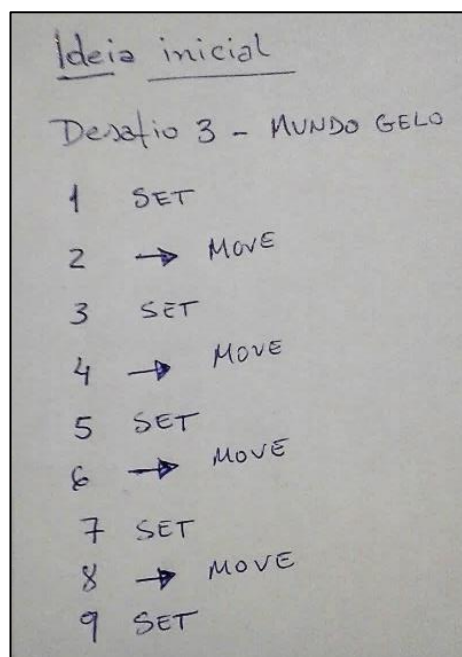 Ideia inicial
Desafio 3 - MUNDO GELO
1 SET
2 → MOVE
3 SET
4 → MOVE
5 SET
6 → MOVE
7 SET
8 → MOVE
9 SET